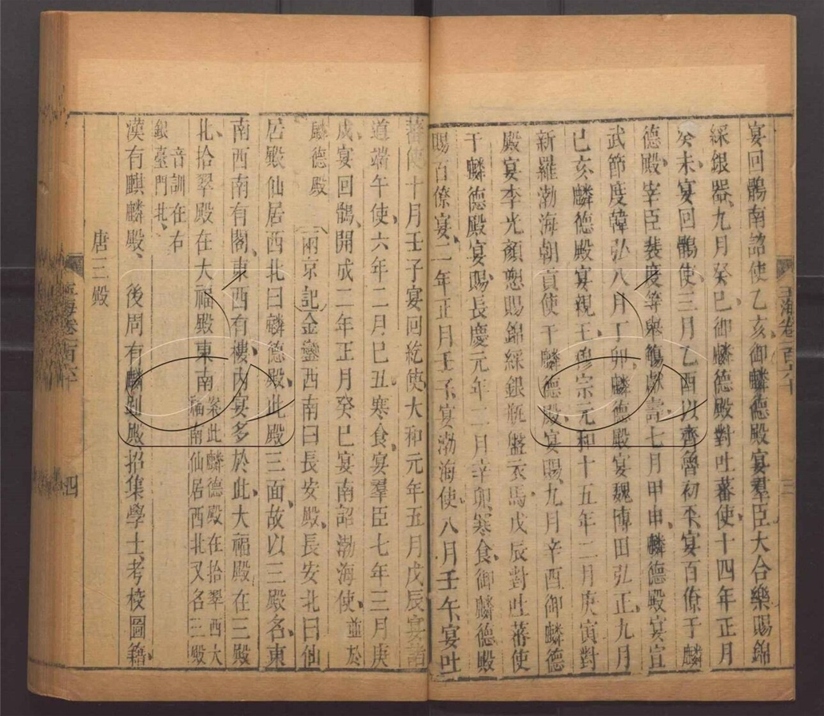 宴回鶻南詔使乙亥御麟德殿宴羣臣大合樂賜錦
綵銀器九月癸巳御麟德殿對吐蕃使十四年正月
癸未宴回鶻使三月乙酉以齊魯初平宴百僚于麟
德殿宰臣裴度等舉觴獻壽七月甲申麟德殿宴宣
武節度韓弘八月丁卯麟德殿宴魏博田弘正九月
己亥麟德殿宴親王穆宗元和十五年二月庚寅對
新羅渤海朝貢使于麟德殿宴賜九月辛酉御麟德
殿宴李光顏愬賜錦綵銀瓶盤衣馬戊辰對吐蕃使
于麟德殿宴賜長慶元年二月辛卯寒食御麟德殿
賜百僚宴二年正月壬子宴渤海使八月壬午宴吐
蕃使十月壬子宴回紇使大和元年五月戊辰宴諸
道端午使六年二月己丑寒食宴羣臣七年三月庚
戌宴回鶻開成二年正月癸巳宴南詔渤海使並於
麟德殿 兩京記金鑾西南曰長安殿長安北曰仙
居殿仙居西北曰麟德殿此殿三面故以三殿名東
南西南有閣東西有樓內宴多於此大福殿在三殿
北拾翠殿在大福殿東南 案此麟德殿在拾翠西大
福南仙居西北又名三殿
音訓在右
銀臺門北
漢有麒麟殿 後周有麟趾殿招集學士考校圖籍
唐三殿
玉海卷一百六十
四